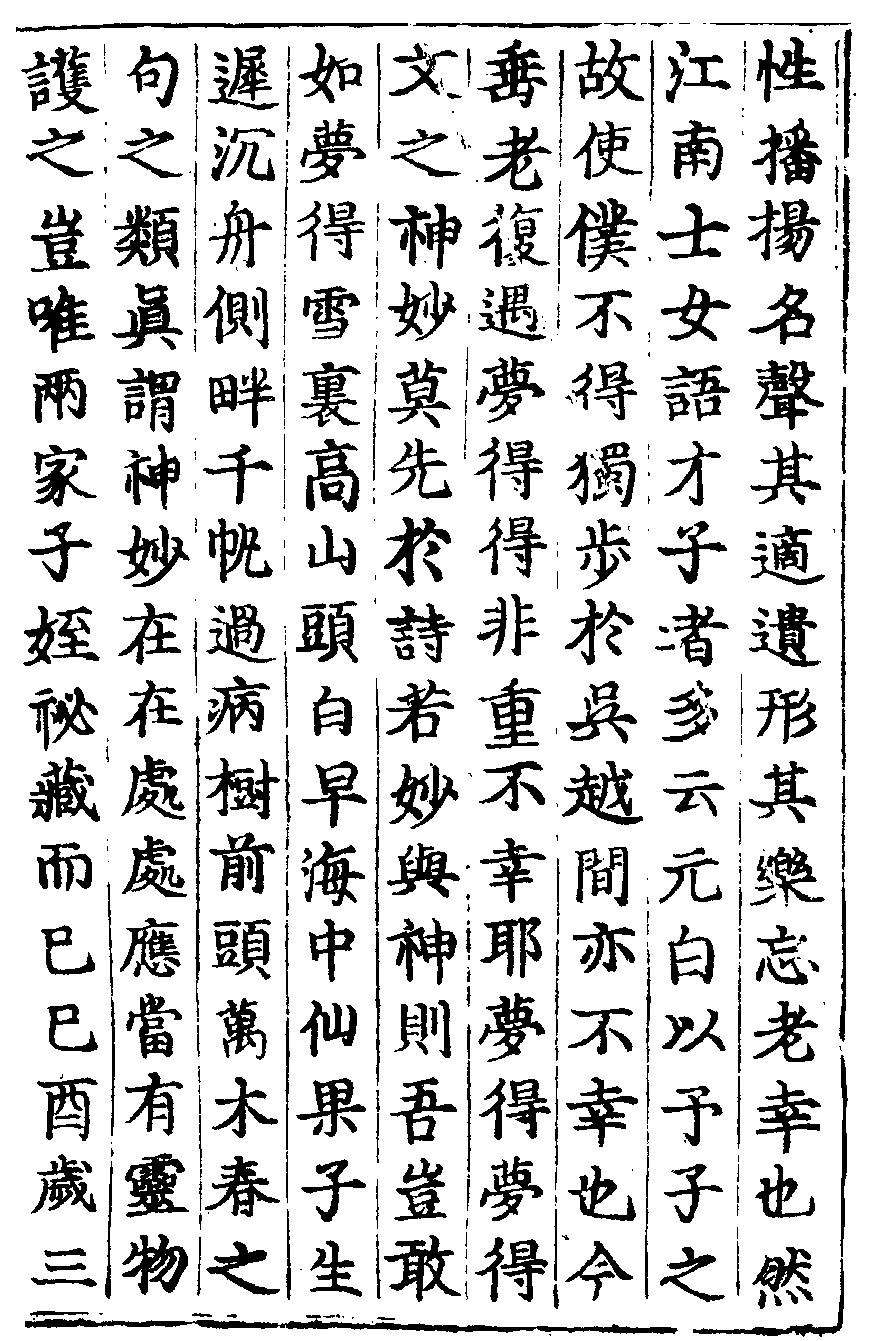 性播揚名聲其適遺形其樂忘老幸也然
江南士女語才子者多云元白以予子之
故使僕不得獨步於吳越間亦不幸也今
垂老復遇夢得得非重不幸耶夢得夢得
文之神妙莫先於詩若妙與神則吾豈敢
如夢得雪裏高山頭白早海中仙果子生
遲沉舟側畔千帆過病樹前頭萬木春之
句之類眞謂神妙在在處處應當有靈物
護之豈唯兩家子姪祕藏而已已酉歲三